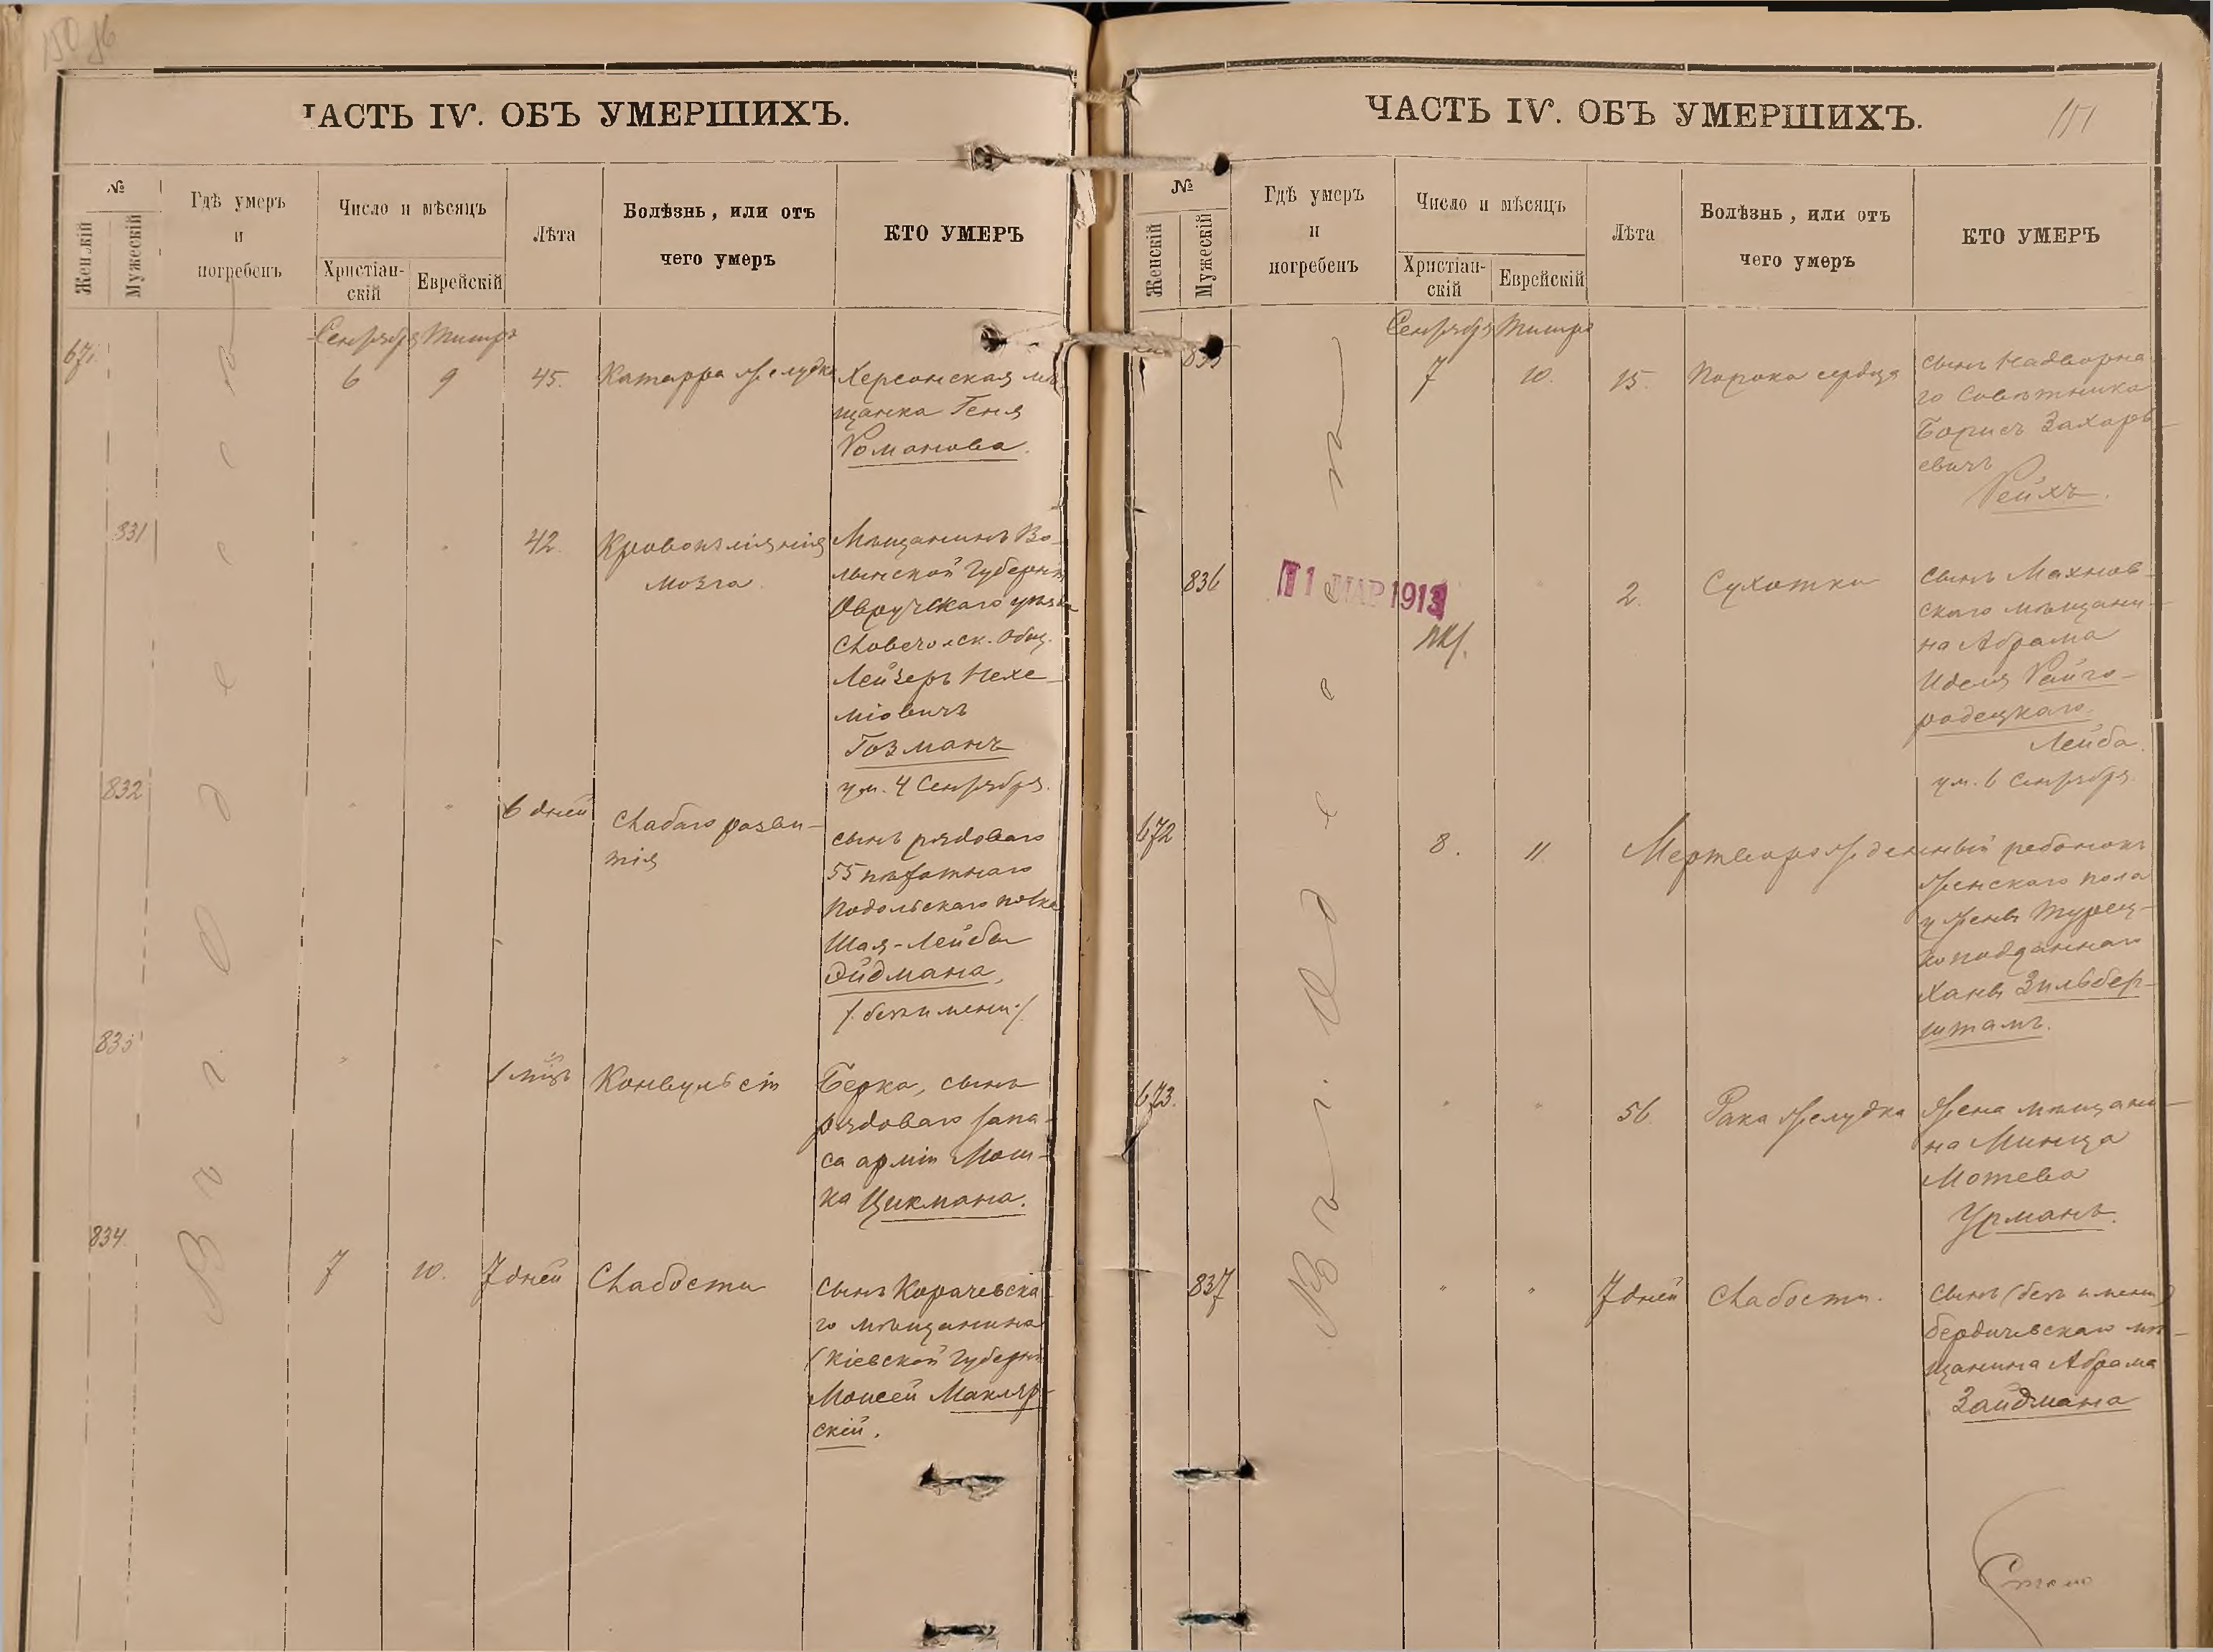 150
ЧАСТЬ IV. ОБЪ УМЕРШИХЪ.
№
Женскій
Мужескій
Гдѣ умеръ
и
погребенъ
Число и мѣсяцъ
Христіан-
скій
Еврейскій
Лѣта
Болѣзнь, или отъ
чего умеръ
КТО УМЕРЪ
Въ г. Одессѣ
Сентября Тишри
671. 6 9 45. Катарра желудка Херсонская мѣ-
щанка Геня
Романова.
831 " " 42. Кровоизліянія Мѣщанинъ Во-
мозга. лынской Губерніи
Овручскаго уѣзда
Словечолск. Общ.
Лейзеръ Нехе-
міовичъ
Гозманъ
ум. 4 Сентября.
832 " " 6 дней Слабаго разви-
тія
сынъ рядоваго
55 пѣхотнаго
Подольскаго полка
Шая-Лейбы
Эйдмана,
/безъ имени/
833 " " 1 мѣц. Конвульсіи Берка, сынъ
рядоваго запа-
са арміи Мош-
ка Цикмана.
834. 7 10. 7 дней Слабости сынъ Корачевска-
го мѣщанина
/Кіевской Губерніи
Моисей Макляр-
скій.
ЧАСТЬ IV. ОБЪ УМЕРШИХЪ.
151
№
Женскій
Мужескій
Гдѣ умеръ
и
погребенъ
Число и мѣсяцъ
Христіан-
скій
Еврейскій
Лѣта
Болѣзнь, или отъ
чего умеръ
КТО УМЕРЪ
Въ г. Одессѣ
Сентября Тишри
835 7 10. 15. Порока сердца сынъ Надворна-
го Совѣтника
Борисъ Захарь-
евичъ
Рейхъ.
836 11 МАР 1913 " 2. Сухотки сынъ Махнов-
скаго мѣщани-
на Абрама
Иделя Райго-
родецкаго
Лейба.
ум. 6 Сентября.
672 8. 11. Мертворожденный ребенокъ
женскаго пола
у жены Турец-
коподданнаго
Ханы Зильбер-
штамъ.
673. " " 56. Рака желудка Жена мѣщани-
на Минца
Мотева
Урманъ.
837 " " 7 дней Слабости. Сынъ (безъ имени)
бердичевскаго мѣ-
щанина Абрама
Зайдмана